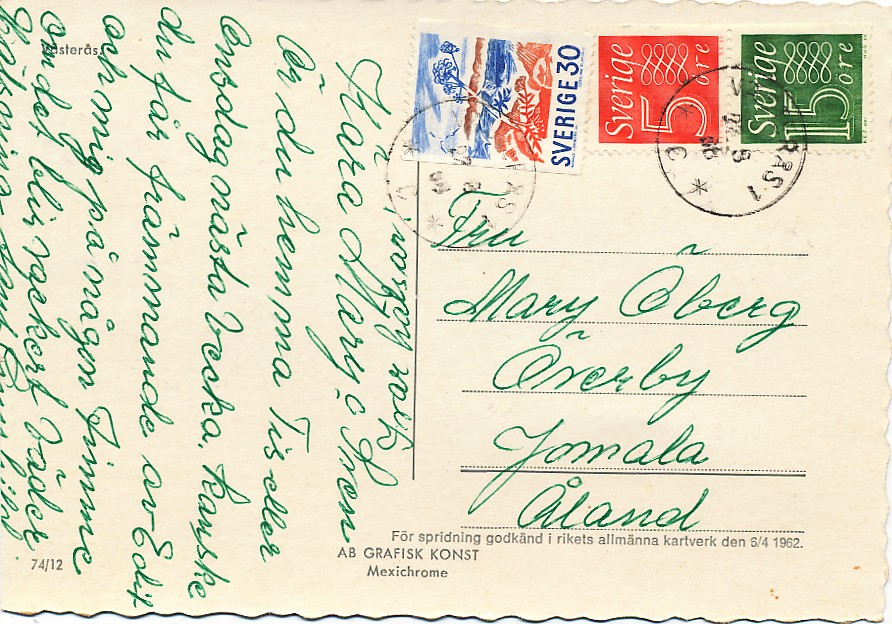 Västerås
Kära Mary o Sven
Är du hemma Tis eller
Onsdag nästa vecka, kanske
du får främmande av Edit
och mig på någon timme
om det blir vackert väder
Hälsningar
SVERIGE 30
Sverige 5 öre
Sverige 15 öre
Fru
Mary Öberg
Överby
Jomala
Åland
För spridning godkänd i rikets allmänna kartverk den 6/4 1962.
AB GRAFISK KONST
Mexichrome
74/12